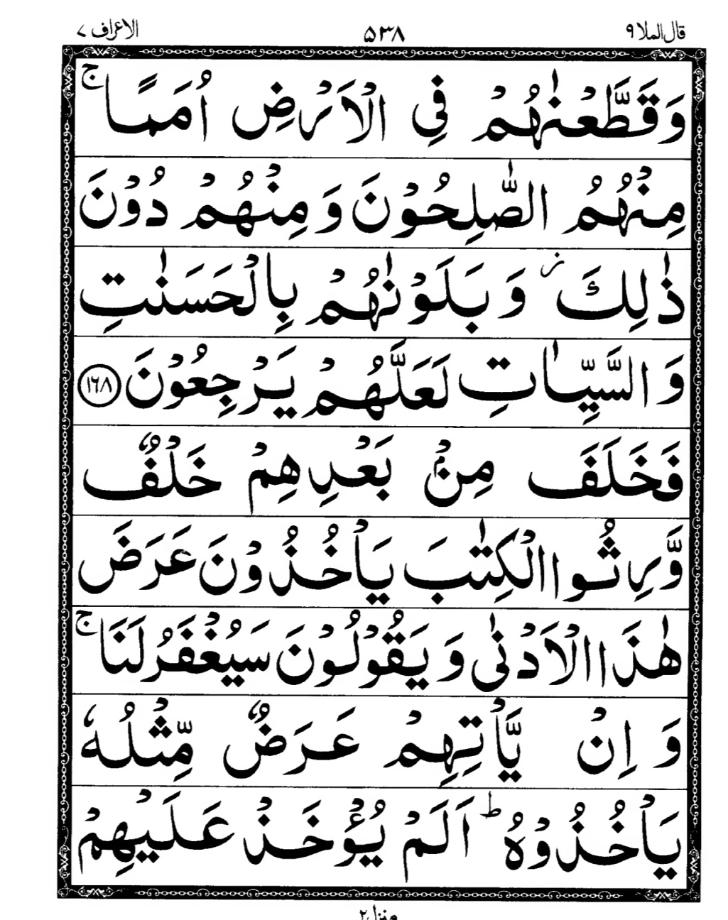 قال الملا ٩ ۵۳۸ الاعراف ٧
وَقَطَّعْنٰهُمْ فِي الْاَرْضِ اُمَمًا ۚ
مِنْهُمُ الصّٰلِحُوْنَ وَمِنْهُمْ دُوْنَ
ذٰلِكَ ز وَبَلَوْنٰهُمْ بِالْحَسَنٰتِ
وَالسَّيِّاٰتِ لَعَلَّهُمْ يَرْجِعُوْنَ ﴿١٦٨﴾
فَخَلَفَ مِنْۢ بَعْدِهِمْ خَلْفٌ
وَّرِثُوا الْكِتٰبَ يَاْخُذُوْنَ عَرَضَ
هٰذَا الْاَدْنٰى وَيَقُوْلُوْنَ سَيُغْفَرُ لَنَا ۚ
وَاِنْ يَّاْتِهِمْ عَرَضٌ مِّثْلُهٗ
يَاْخُذُوْهُ ؕ اَلَمْ يُؤْخَذْ عَلَيْهِمْ
منزل ٢